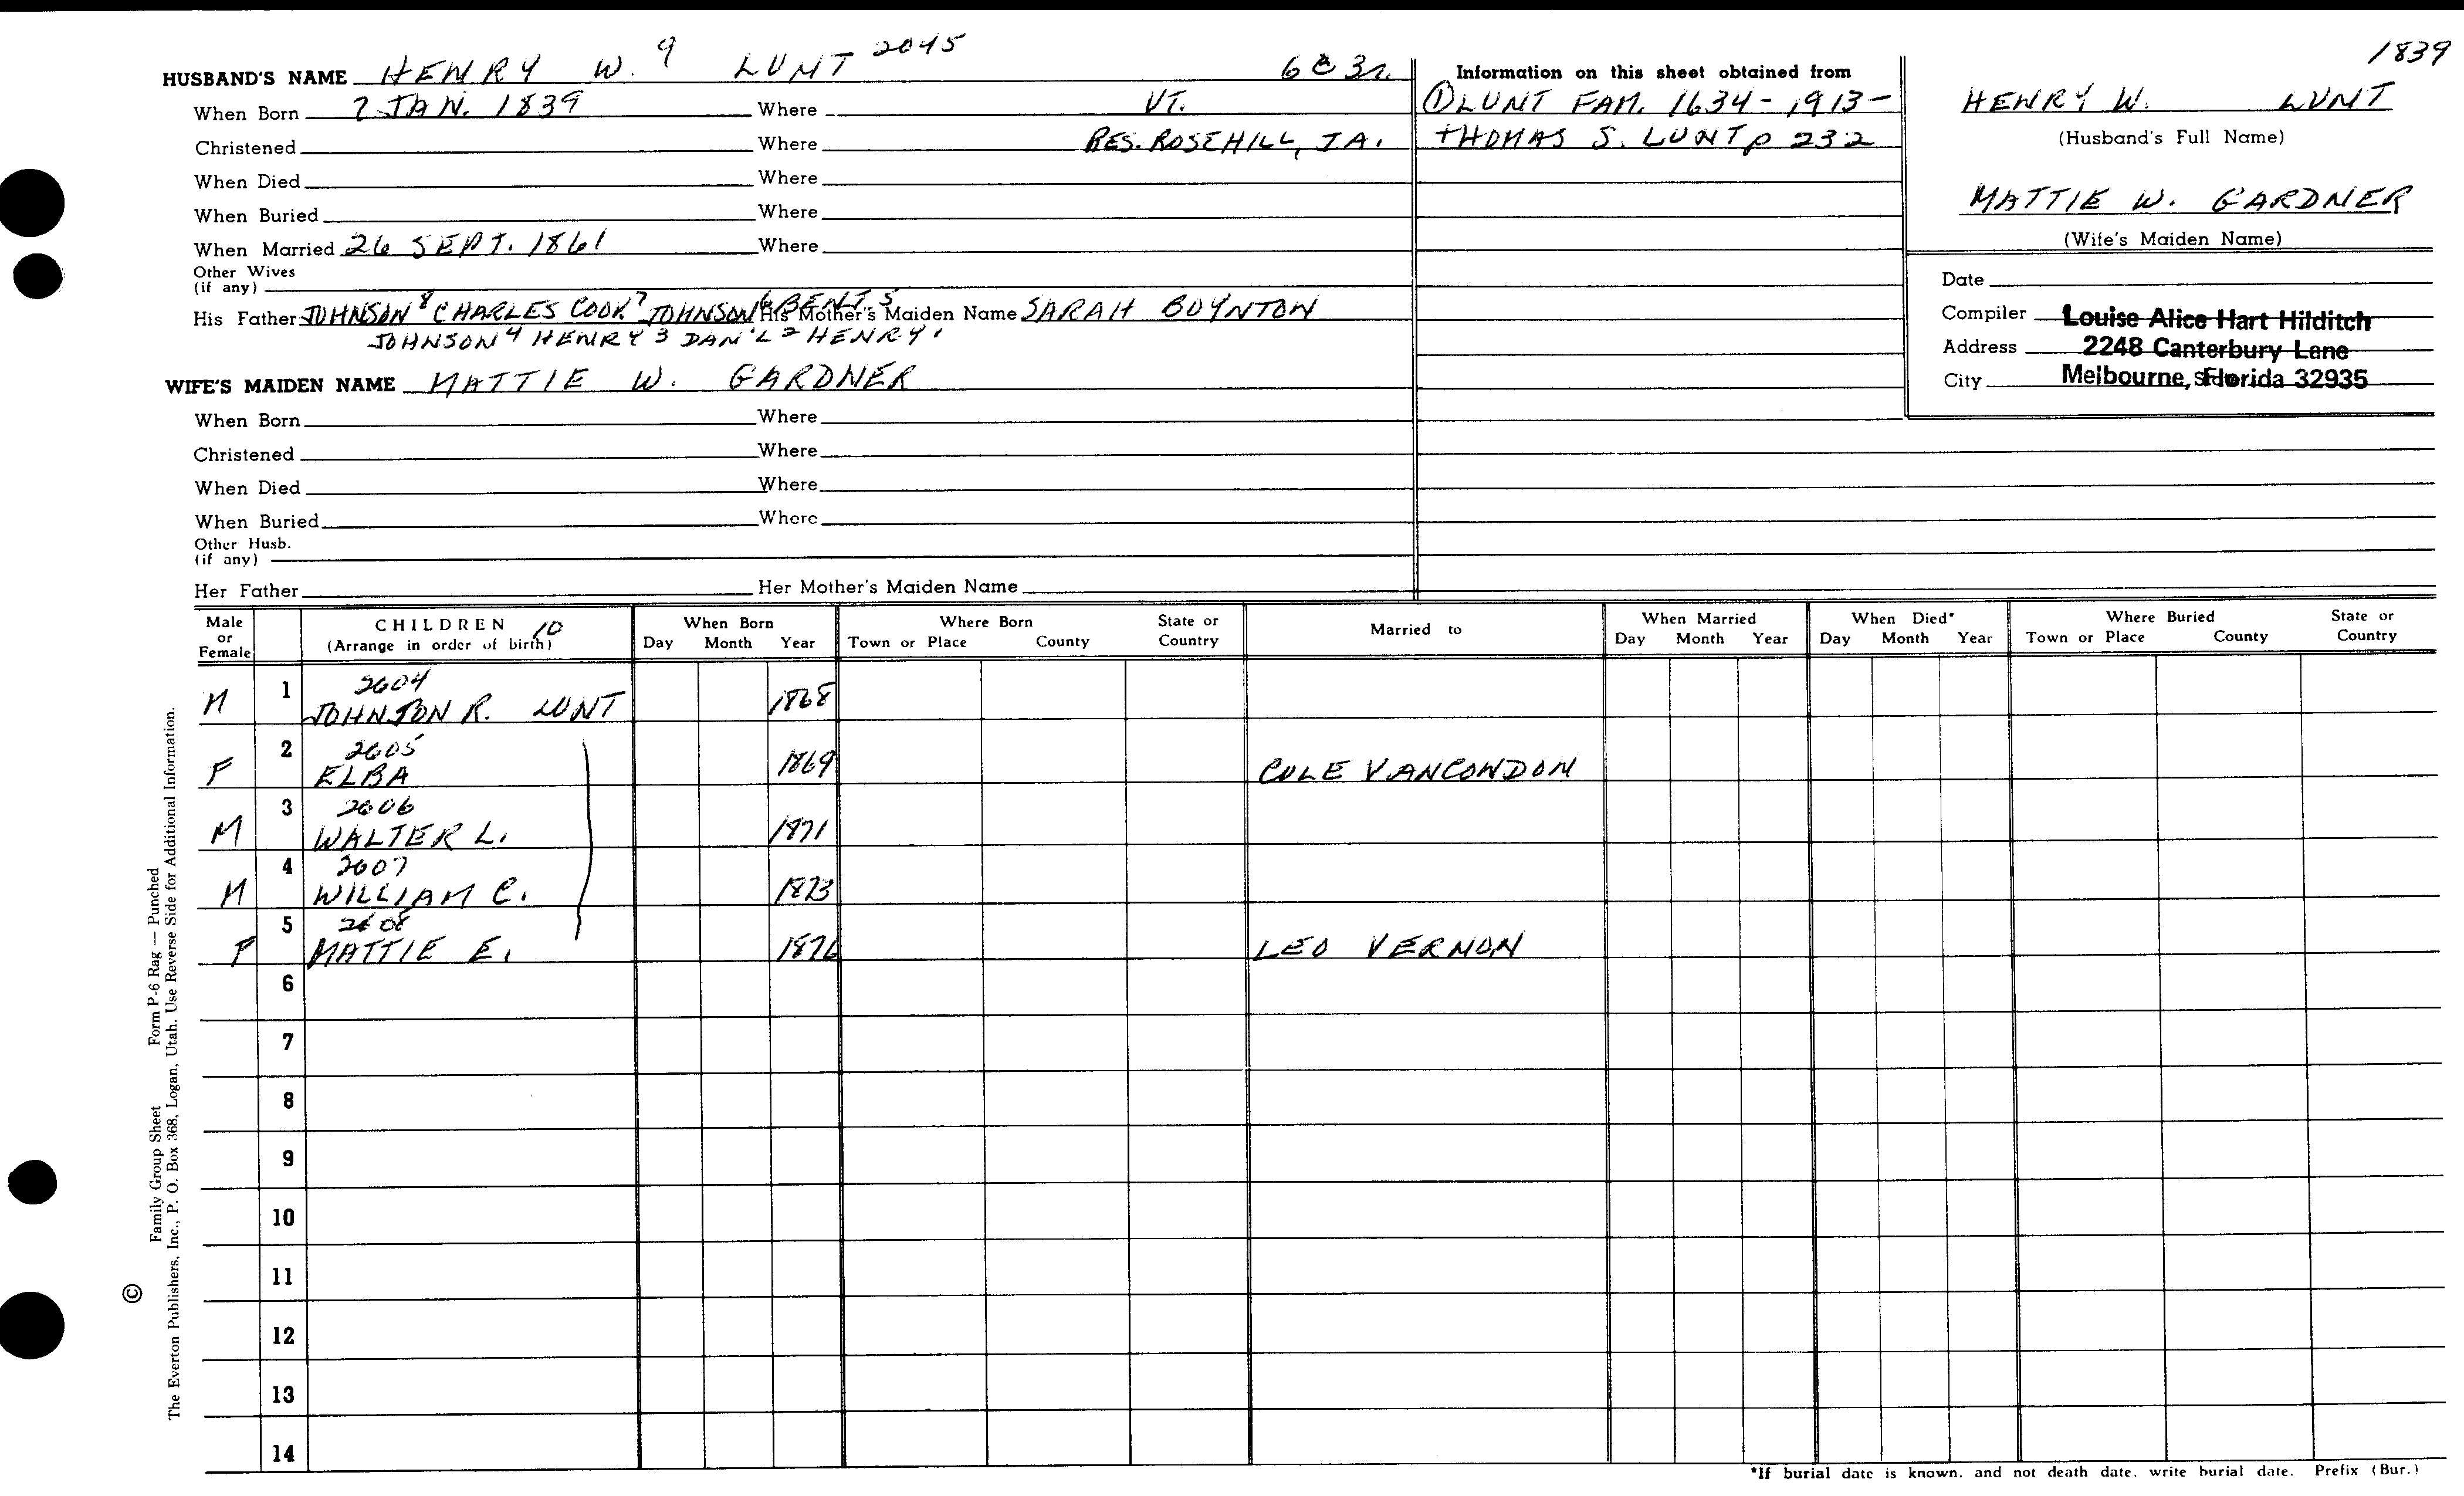 1839
HUSBAND'S NAME HENRY W. 9 LUNT 2045
When Born 7 JAN. 1839 Where VT.
Christened Where RES. ROSEHILL, IA.
When Died Where
When Buried Where
When Married 26 SEPT. 1861 Where
Other Wives
(if any)
His Father JOHNSON 8 CHARLES COOK 7 JOHNSON 6 BENJ. 5 His Mother's Maiden Name SARAH BOYNTON
JOHNSON 4 HENRY 3 DAN'L 2 HENRY 1
WIFE'S MAIDEN NAME MATTIE W. GARDNER
When Born Where
Christened Where
When Died Where
When Buried Where
Other Husb.
(if any)
Her Father Her Mother's Maiden Name
Information on this sheet obtained from
① LUNT FAM. 1634-1913-
THOMAS S. LUNT p 232
HENRY W. LUNT
(Husband's Full Name)
MATTIE W. GARDNER
(Wife's Maiden Name)
Date
Compiler Louise Alice Hart Hilditch
Address 2248 Canterbury Lane
City Melbourne, Florida 32935
Male or Female CHILDREN 10 (Arrange in order of birth) When Born Day Month Year Where Born Town or Place County State or Country Married to When Married Day Month Year When Died* Day Month Year Where Buried Town or Place County State or Country
2604
M 1 JOHNSON R. LUNT 1868
2605
F 2 ELBA 1869 COLE VANCONDON
2606
M 3 WALTER L. 1871
2607
M 4 WILLIAM C. 1873
2608
F 5 MATTIE E. 1876 LEO VERNON
6
7
8
9
10
11
12
13
14
*If burial date is known, and not death date, write burial date. Prefix (Bur.)
© Family Group Sheet Form P-6 Rag — Punched
The Everton Publishers, Inc., P. O. Box 368, Logan, Utah. Use Reverse Side for Additional Information.